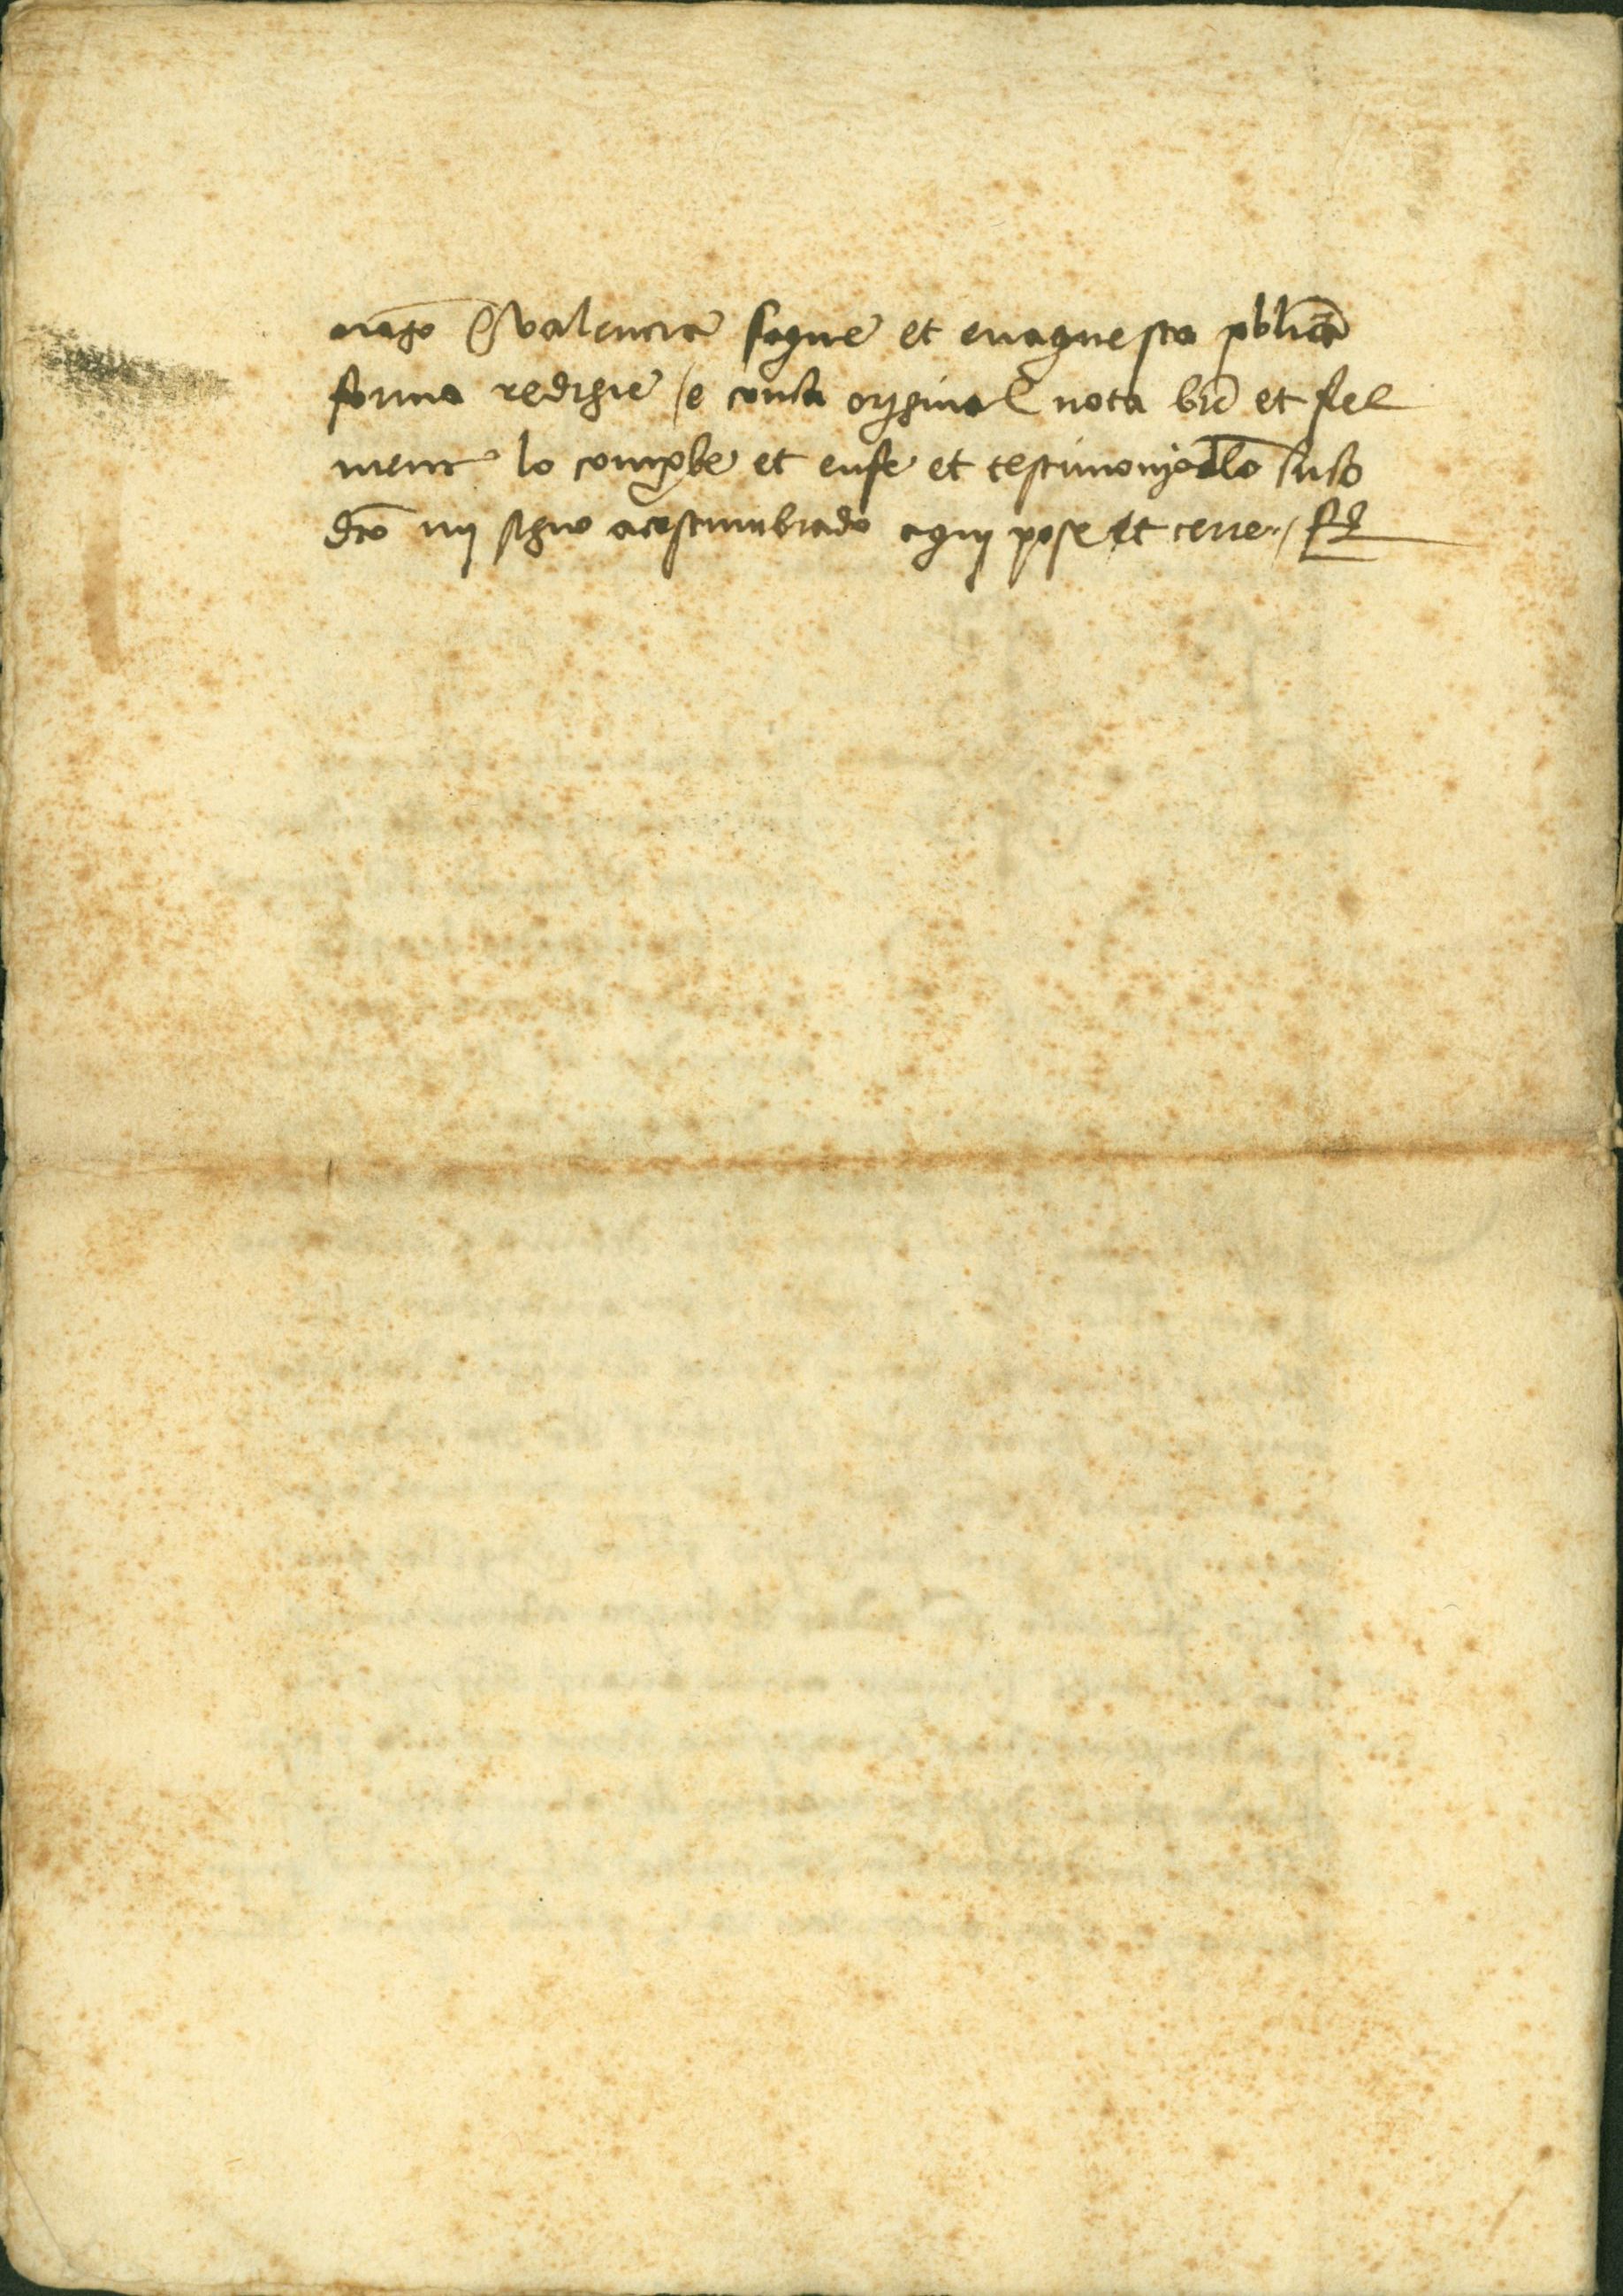 arago et valencia saque et en aquesta publica
forma redigie / e con la original nota bie et fiel
ment lo comprobe et en fe et testimonjo dlo suso
dco mj signo acostumbrado aquj pose et cerre //